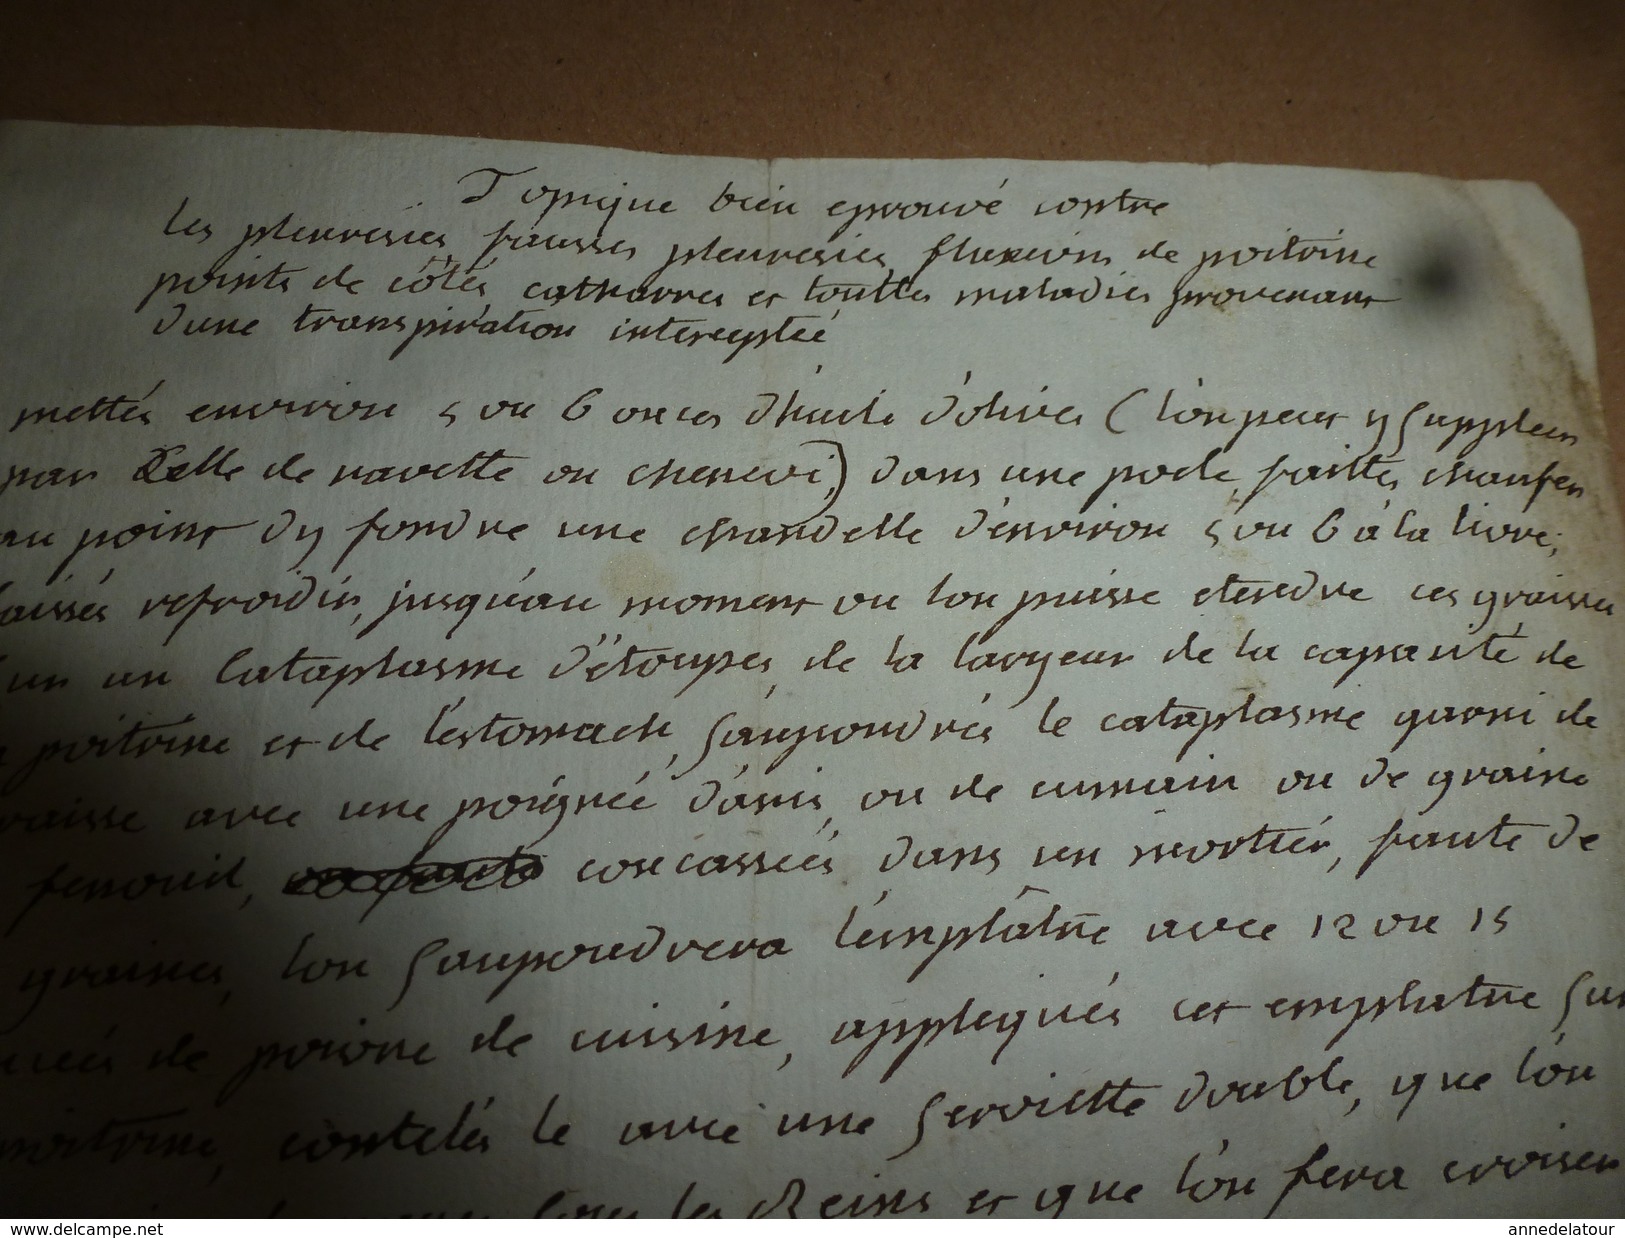 Topique bien eprouvé contre
les pleuresies, fausses pleuresies, fluxions de poitrine
points de côtés, catharres et touttes maladies provenant
d'une transpiration interceptée
mettés environ 5 ou 6 onces d'huile d'olives (l'on peut y suppleer
par celle de navette ou chenevi,) dans une poele, faittes chaufer
au point d'y fondre une chandelle d'environ 5 ou 6 à la livre;
laissés refroidir, jusqu'au moment ou l'on puisse etendre ces graisses
sur un cataplasme d'étoupes, de la largeur de la capacité de
poitrine et de l'estomach, saupoudrés le cataplasme garni de
graisse avec une poignée d'anis, ou de cumain ou de graine
fenouil, concassées dans un mortier, faute de
graines, l'on saupoudrera l'emplâtre avec 12 ou 15
de poivre de cuisine, appliqués cet emplatre sur
poitrine, contelés le avec une serviette double, que l'on
sous les Reins et que l'on fera croiser
www.delcampe.net
annedelatour